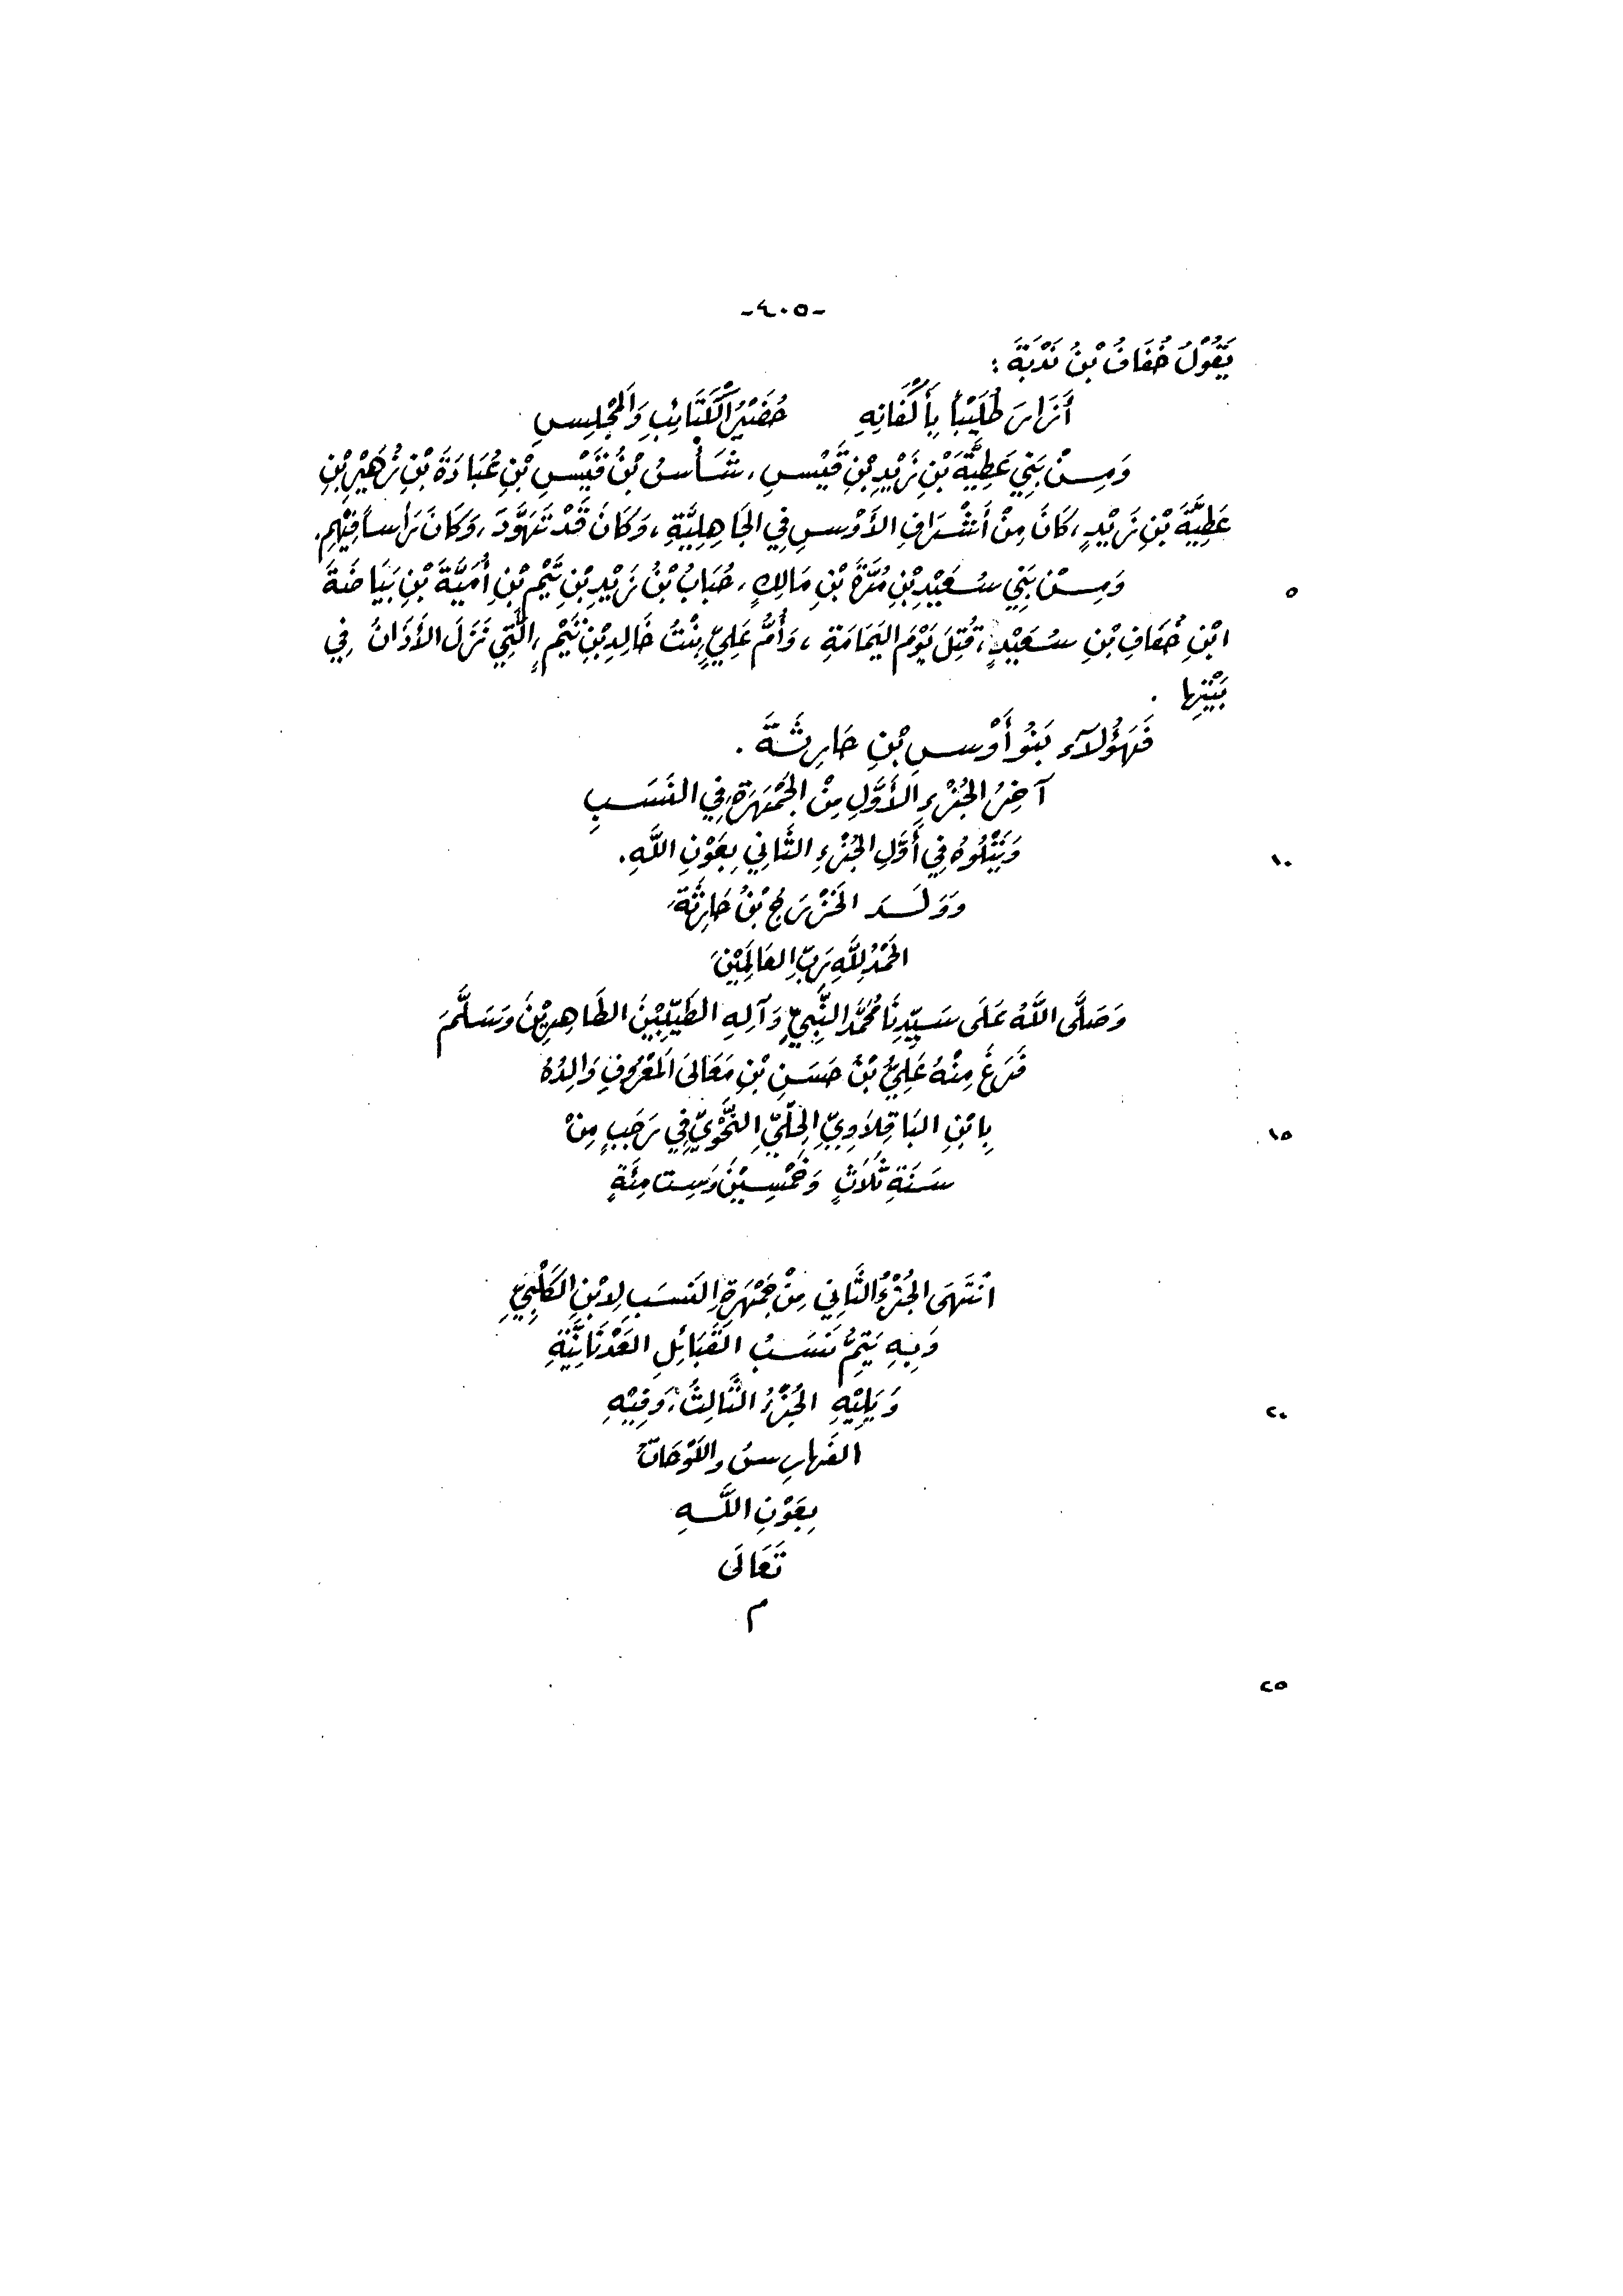 -٤٠٥-
يَقُوْلُ خُفَافُ بْنُ نَدْبَةَ :
أَزَارَ طُلَيْباً بِأَكْفَانِهِ حُضَيْرُ الكَتَائِبِ وَالمَجْلِسِ
وَمِنْ بَنِي عَطِيَّةَ بْنِ زَيْدِ بْنِ قَيْسِ، شَأْسُ بْنُ قَيْسِ بْنِ عُبَادَةَ بْنِ زُهَيْرِ بْنِ
عَطِيَّةَ بْنِ زَيْدٍ، كَانَ مِنْ أَشْرَافِ الأَوْسِ فِي الجَاهِلِيَّةِ، وَكَانَ قَدْ تَهَوَّدَ، وَكَانَ رَأْساً فِيْهِمِ.
وَمِنْ بَنِي سُعَيْدِ بْنِ مُرَّةَ بْنِ مَالِكٍ، حُبَابُ بْنُ زَيْدِ بْنِ تَيْمِ بْنِ أُمَيَّةَ بْنِ بَيَاضَةَ
٥
ابْنِ خُفَافِ بْنِ سُعَيْدٍ، قُتِلَ يَوْمَ اليَمَامَةِ، وَأُمُّ عَلِيٍّ بِنْتُ خَالِدِ بْنِ تَيْمٍ، الَّتِي نَزَلَ الأَذَانُ فِي
بَيْتِهَا .
فَهَؤُلَآءِ بَنُو أَوْسِ بْنِ حَارِثَةَ .
آخِرُ الجُزْءِ الأَوَّلِ مِنْ الجَمْهَرَةِ فِي النَسَبِ
وَيَتْلُوهُ فِي أَوَّلِ الجُزْءِ الثَّانِي بِعَوْنِ اللَّهِ.
١٠
وَوَلَدَ الخَزْرَجُ بْنُ حَارِثَةَ
الحَمْدُ لِلَّهِ رَبِّ العَالَمِيْنَ
وَصَلَّى اللَّهُ عَلَى سَيِّدِنَا مُحَمَّدِ النَّبِيِّ وَآلِهِ الطَيِّبِيْنَ الطَاهِرِيْنَ وَسَلَّمَ
فَرَغَ مِنْهُ عَلِيُّ بْنُ حَسَنِ بْنِ مَعَالَى المَعْرُوفِ وَالِدُهُ
بِابْنِ البَاقِلَاوِيِّ الحِلِّيِّ النَّحْوِيِّ فِي رَجَبٍ مِنْ
١٥
سَنَةِ ثَلَاثٍ وَخَمْسِيْنَ وَسِتمِئَةٍ
انْتَهَى الجُزْءُ الثَّانِي مِنْ جَمْهَرَةِ النَسَبِ لِابْنِ الكَلْبِيِّ
وَبِهِ يَتِمُّ نَسَبُ القَبَائِلِ العَدْنَانِيَّةِ
وَيَلِيْهِ الجُزْءُ الثَّالِثُ، وَفِيْهِ
٢٠
الفَهَارِسُ واللَوْحَاتُ
بِعَوْنِ اللَّهِ
تَعَالَى
م
٢٥